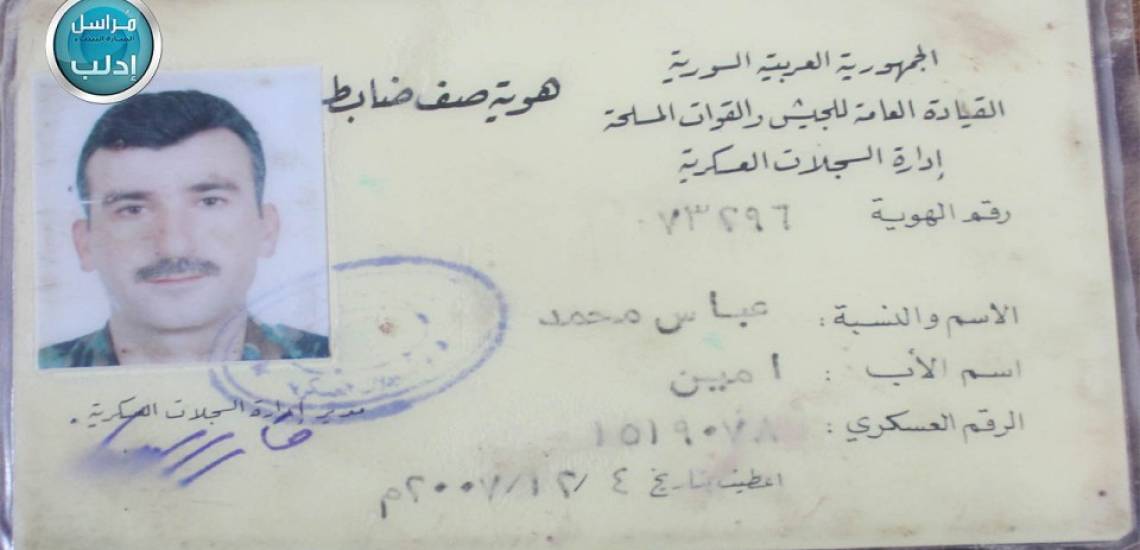 مراسل
إدلب
الجمهورية العربية السورية
القيادة العامة للجيش والقوات المسلحة
إدارة السجلات العسكرية
هوية صف ضابط
رقم الهوية ٠٧٣٢٩٦
الاسم والنسبة: عباس محمد
اسم الأب : امين
الرقم العسكري: ١٥١٩٠٧٨
اعطيت بتاريخ ٤ /١٢/ ٢٠٠٧م
مدير إدارة السجلات العسكرية .